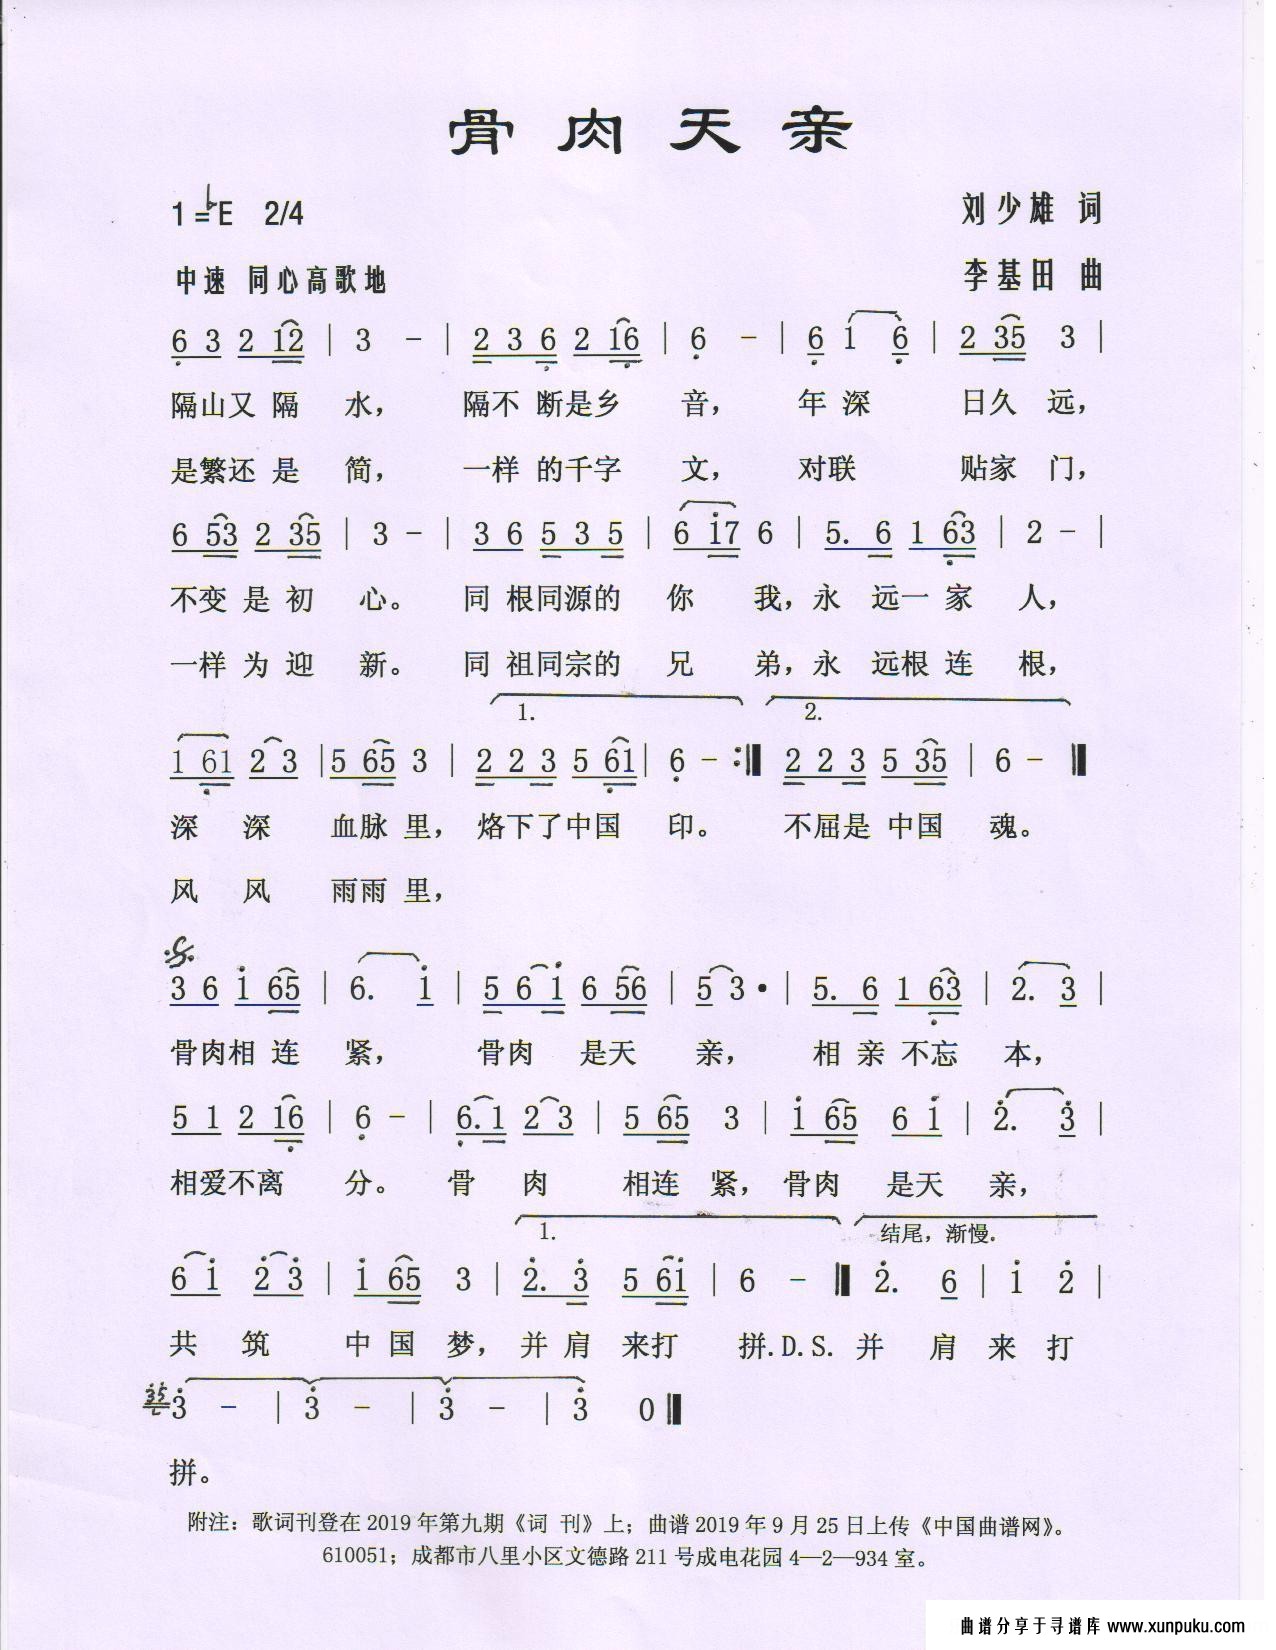 骨肉天亲
1=♭E 2/4 刘少雄 词
中速 同心高歌地 李基田 曲
6 3 2 12 | 3 - | 2 3 6 2 16 | 6 - | 6 1 6 | 2 35 3 |
隔山又 隔 水， 隔不 断是乡 音， 年 深 日久 远，
是繁还 是 简， 一样 的千字 文， 对联 贴家 门，
6 53 2 35 | 3 - | 3 6 5 3 5 | 6 i7 6 | 5. 6 1 63 | 2 - |
不变 是 初 心。 同 根同源的 你 我，永 远一 家 人，
一样 为 迎 新。 同 祖同宗的 兄 弟，永 远根 连 根，
1. 2.
1 61 2 3 | 5 65 3 | 2 2 3 5 61 | 6 - :‖ 2 2 3 5 35 | 6 - ‖
深 深 血脉 里， 烙下了中国 印。 不屈是 中国 魂。
风 风 雨雨 里，
3 6 i 65 | 6. i | 5 6 i 6 56 | 5 3 · | 5. 6 1 63 | 2. 3 |
骨肉相 连 紧， 骨肉 是天 亲， 相 亲 不忘 本，
5 1 2 16 | 6 - | 6. 1 2 3 | 5 65 3 | i 65 6 i | 2. 3 |
相爱不离 分。 骨 肉 相连 紧， 骨肉 是天 亲，
1. 结尾，渐慢.
6 i 2 3 | i 65 3 | 2. 3 5 6i | 6 - ‖ 2. 6 | i 2 |
共 筑 中国 梦， 并 肩 来打 拼.D.S. 并 肩 来 打
35 3 - | 3 - | 3 - | 3 0 ‖
拼。
附注：歌词刊登在 2019 年第九期《词 刊》上；曲谱 2019 年 9 月 25 日上传《中国曲谱网》。
610051；成都市八里小区文德路 211 号成电花园 4—2—934 室。
曲谱分享于寻谱库 www.xunpuku.com